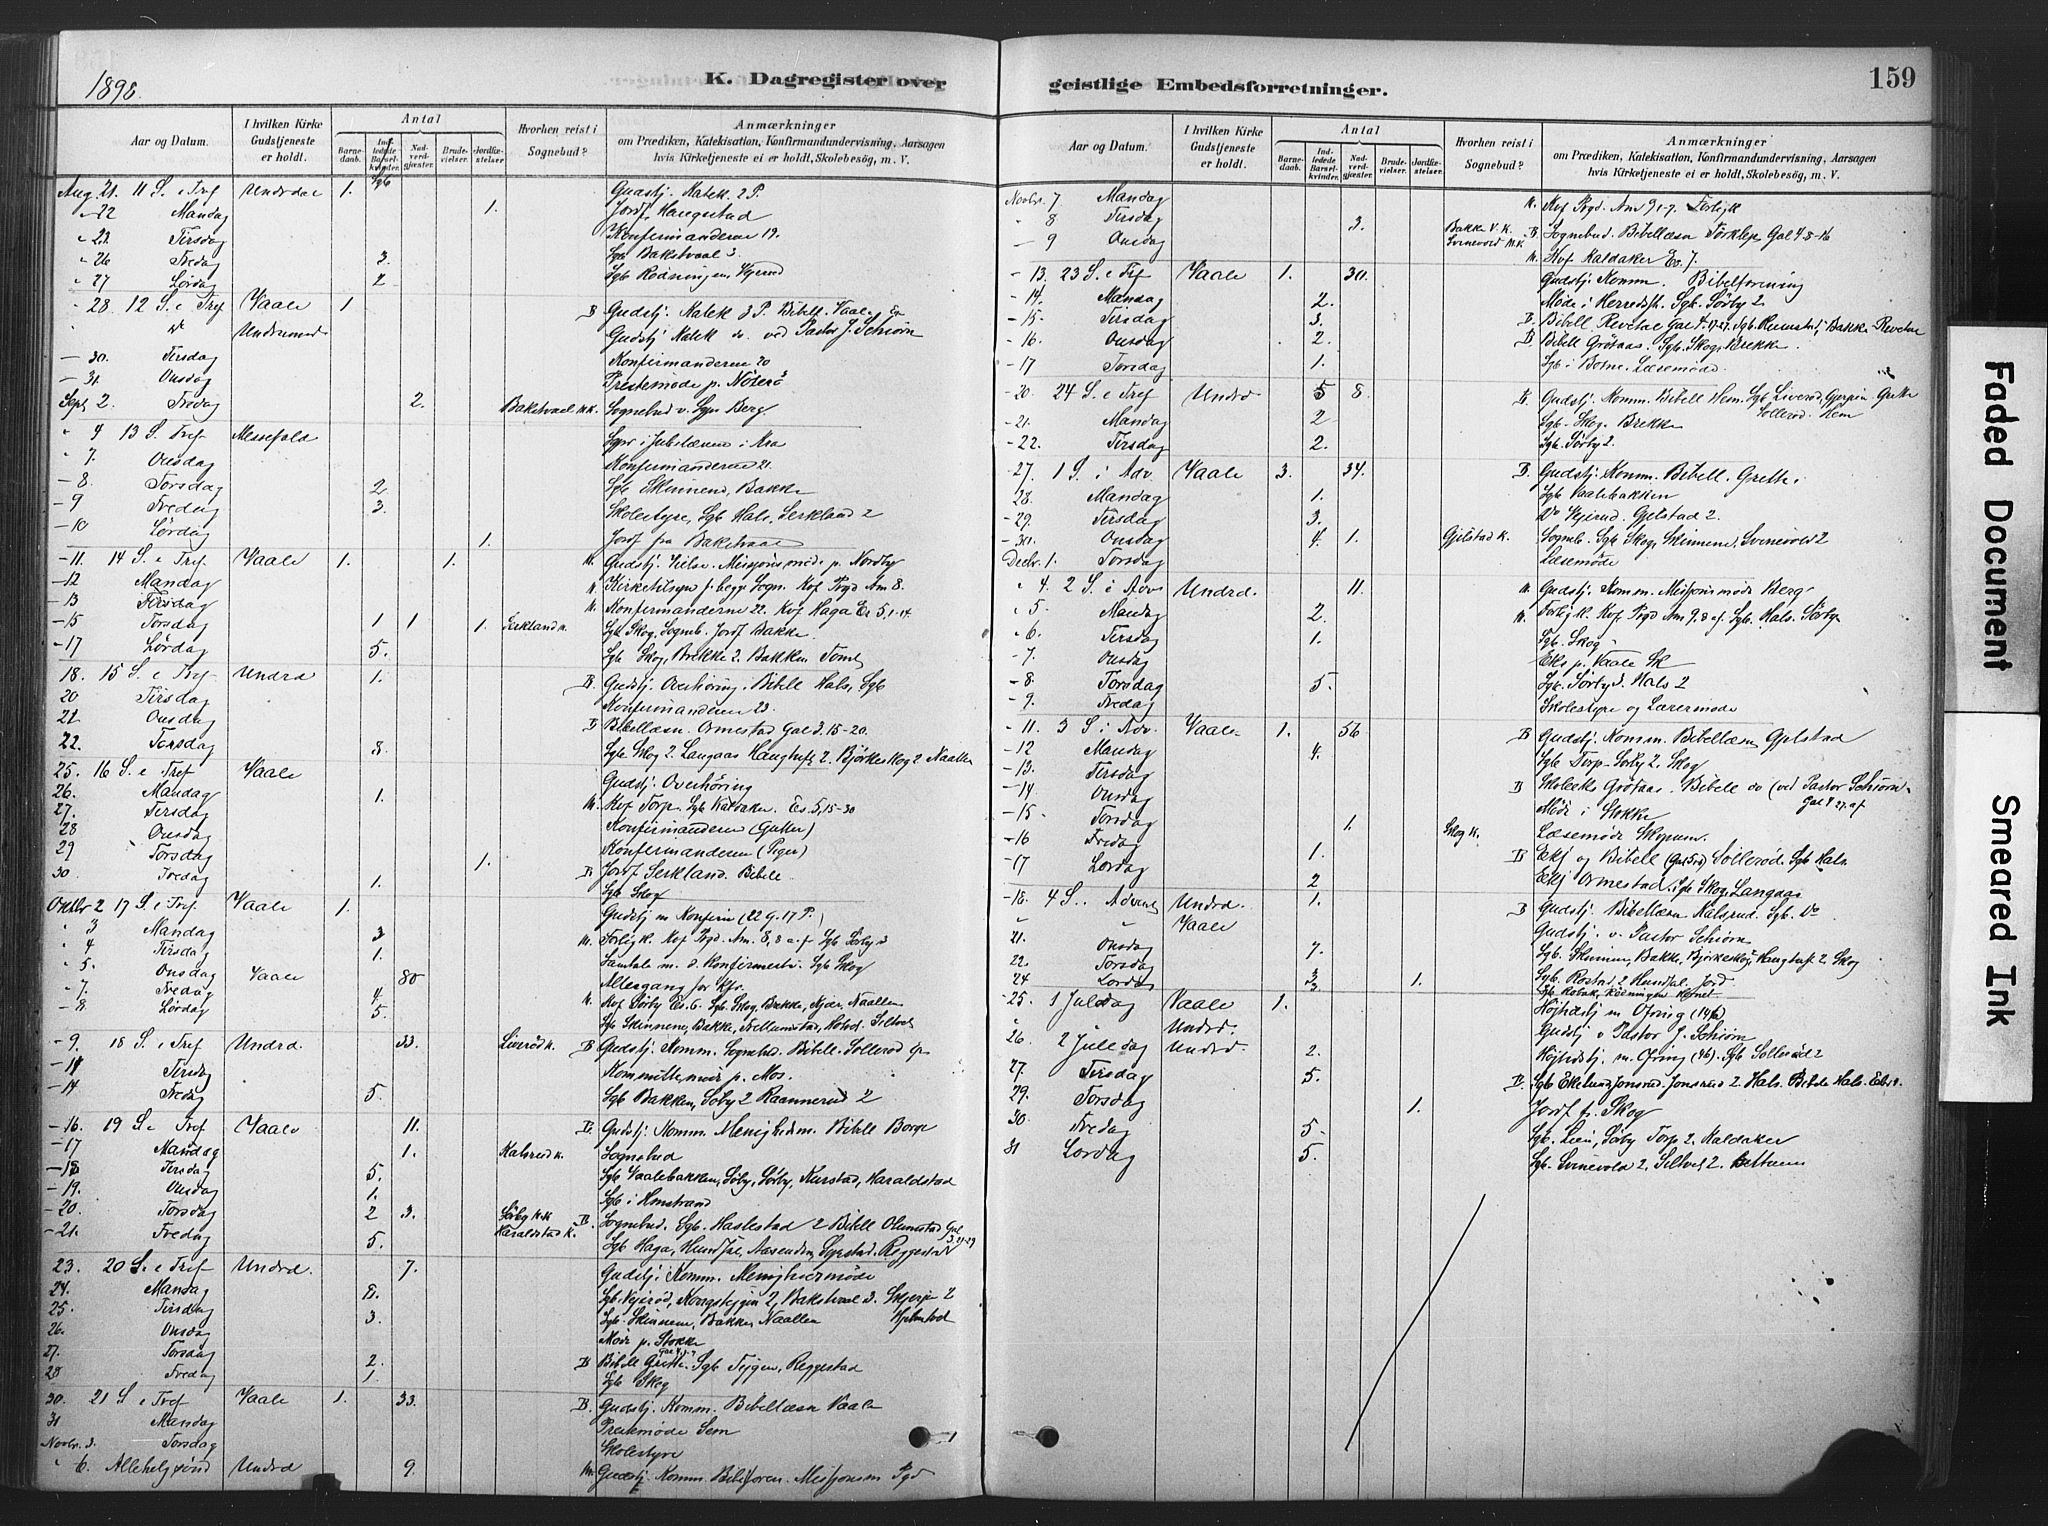 1898.
K. Dagregister over
Aar og Datum.
I hvilken Kirke Gudstjeneste er holdt.
Antal
Barnedaab.
Indledede Barselkvinder.
Nadverdgjæster.
Brudevielser.
Jordfæstelser
Hvorhen reist i Sognebud?
Anmærkninger
om Prædiken, Katekisation, Konfirmandundervisning, Aarsagen
hvis Kirketjeneste ei er holdt, Skolebesøg, m. V.
Aug. 21. 11 S. e Tref Undrdal 1. Gudstj. Katek. 2 P.
" 22 Mandag 1. Jordf. Haugestad
Tirsdag Konfirmanderne 19.
" 26 Fredag 3. Sgb Bakstvaal 3.
" 27 Lørdag 2
- 28. 12 S. e Tref Vaale 1. B Gudstj. Katek 3 P. Bibell. Vaale
Gudstj Katek do. ved Pastor J. Schiørn
- 30. Tirsdag Konfirmanderne 20
- 31. Onsdag Prestemøde p. Nøterø
Sept 2. Fredag 2. Bakstvaal Sognebud v. Sgpr Berg
" 4 13 S. Tref Messefald Sgpr i Jubilæum i Kra
" 7. Onsdag Konfirmanderne 21.
- 8. Torsdag 2 Sgb Skinnend, Bakke
- 9 Fredag 3. Skolestyre, Sgb Hals, Serkland 2
- 10 Lørdag 1. Jordf fra Bakstvaal
- 11. 14 S. e Tref Vaale 1. 1. M. Gudstj. Vielse. Missionsmøde p. Nordby
- 12 Mandag
- 13 Tirsdag M Konfermanderne 22. Kof Haga Es 5,1-14.
- 15 Torsdag 1 1 1. Serkland k. Sgb Skog. Sognb. Jordf Bakke.
- 17 Lørdag 5. Sgb Skog, Brekke 2. Bakken
18. 15 S. e Tref Undrd 1. B Gudstj. Overhøring. Bibell Hals, Sgb
20 Tirsdag Konfirmanderne 23.
21. Onsdag B Bibellæsn. Ormestad Gal 3. 15-20.
22. Torsdag 8. Sgb Skog 2. Langaas Haugtuft 2. Bjørkeskog 2 Naallen
25. 16 S. e Tref Vaale Gudstj. Overhøring
26. Mandag 1. M. Kof Torp. Sgb Kaldaker. Es. 5, 15-30
27. Tirsdag
28 Onsdag Konfirmanderne (Gutter)
29 Torsdag 1. Konfirmanderne (Piger)
30 Fredag 1. B Jordf Serkland. Bibell.
Sgb Skog
Oktbr 2 17 S. e Tref. Vaale 1. Gudstj m Konfirm (22 G. 17 P.)
" 3 Mandag 3
" 4 Tirsdag 1. Samtale m. d. Konfirmerte. Sgb Skog
" 5. Onsdag Vaale 80 Altergang for Kfr.
" 7. Fredag 4. M. Kof Sørby Es. 6. Sgb Skog, Bakke, Naallen
- 8. Lørdag 5. Sgb Skinnene, Bakke,
- 9. 18 S. e Tref Undrd. 33. Liverød k. B Gudstj. Komm. Sognebud. Bibell. Sollerød
- 11 Tirsdag Kommittemøde p. Mos.
- 14 Fredag 5. Sgb Bakken, Søby 2 Raannerud 2
- 16. 19 S. e Tref Vaale 11. B. Gudstj. Komm. Menighedsm. Bibell Borge
- 17 Mandag 1. Kalsrud k. Sognebud
- 18 Tirsdag 5. Sgb Vaalebakken, Søby, Sørby, Kurstad, Haraldstad
- 19. Onsdag 1. Sgb i Hmstrand
- 20 Torsdag 2 3. B. Sognebud. Sgb. Haslestad 2 Bibell Olumstad Gal
- 21. Fredag 5. Haraldstad k. Sgb Haga, Hundsal, Aasenden, Reggestad
23. 20 S. e Tref Undrd. 7. Gudstj. Komm. Menighedsmøde
24. Mandag 8.
25. Tirsdag 3. Sgb. Skinnene, Bakke, Naallen
26. Onsdag Møde p. Stokke
27. Torsdag 2. B Bibell Grette. Sgb Reggestad
28 Fredag 1. Sgb Skog
30. 21 S e Tref Vaale 1. 33. B. Gudstj. Komm. Bibellæsn Vaale
31 Mandag Prestemøde Sem
Novbr. 3. Torsdag Skolestyre
" 6. Allehelgsønd Undrd 9. M. Gudstj. Komm. Bibelforen. Missjonsm
geistlige Embedsforretninger.
159
Aar og Datum.
I hvilken Kirke Gudstjeneste er holdt.
Antal
Barnedaab.
Indledede Barselkvinder.
Nadverdgjæster.
Brudevielser.
Jordfæstelser.
Hvorhen reist i Sognebud?
Anmærkninger
om Prædiken, Katekisation, Konfirmandundervisning, Aarsagen
hvis Kirketjeneste ei er holdt, Skolebesøg, m. V.
Novbr. 7 Mandag M. Kof Pgd. Am 9 1-7. Forligk
" 8 Tirsdag 3. Bakke V. K. B Sognebud. Bibellæsn Gal 4. 8-16
- 9 Onsdag Svinevold M.K. M. Kof Kaldaker Es. 7.
- 13. 23 S. e Tref Vaale 1. 30. Gudstj: Komm. Bibelforening
- 14. Mandag 2. Møde i Herredsst. Sgb. Sørby 2
- 15. Tirsdag 3. B. Bibell. Revetal Bakke Revetal
- 16. Onsdag 2. B Bibell Grøtaas. Sgb. Skog, Brekke.
- 17 Torsdag 1. Sgb i Botne. Læsemøde.
- 20. 24 S. e Tref Undrd 5 8. B. Gudstj. Komm. Bibell Hem. Sgb Liverød, Gjerpin Grette
Sollerød. Hem
- 21. Mandag 2 Sgb. Skog. Brekke
- 22. Tirsdag 2. Sgb Sørby 2.
- 27. 1 S. i Adv. Vaale 3. 34. B. Gudstj. Komm. Bibell. Grette.
28. Mandag 1. Sgb Vaalebakken
- 29. Tirsdag 3. Do Vejrud. Gjelstad 2.
- 30. Onsdag 4. 1. Gjelstad k. Sognb. Sgb Skog, Skinnend, Svinevold 2
Decbr. 1. Torsdag Læsemøde
" 4. 2 S. i Adv Undrd. 11. M. Gudstj. Komm. Missjonsmøde Berg
" 5. Mandag 2. M. Forligk. Kof Pgd Am 9,8 af. Sgb. Hals. Sørby
" 6. Tirsdag 1. Sgb. Skog
- 7. Onsdag Eks p. Vaale Sk
- 8. Torsdag 5. Sgb. Sørby 3. Hals 2
- 9. Fredag Skolestyre og Lærermøde
- 11. 3 S. i Adv. Vaale 1. 56 B Gudstj. Komm. Bibellæsn Gjelstad
- 12 Mandag 4. Sgb Torp. Sørby 2. Skog
- 13. Tirsdag B Skoleeks Grøtaas. Bibell do (ved Pastor Schiørn
Gal 4 27. af
- 14 Onsdag Møde i Stokke
- 15. Torsdag 1. Skog k. Læsemøde Skopum.
- 16 Fredag 1. B Eksj og Bibell (Gal 5,3) Sollerød. Sgb Hals
- 17 Lørdag 2 Eksj Ormestad. Sgb Skog, Langaas
- 18. 4 S.. Advent Undrd. 1. B Gudstj. Bibellæsn Kalsrud. Sgb. Do
" Vaale Gudstj. v. Pastor Schiørn
21. Onsdag 7. Sgb. Skinnen, Bakke, Bjørkeskog Haugtuft 2. Skog
22. Torsdag 3 Sgb. Rostad, 2 Hundsal, Jord.
24 Lørdag 3 1.
- 25. 1 Juledag Vaale 1. Højtidstj m Ofring (146)
" Undrd. Gudstj v Pastor J. Schiørn
26. 2 Juledag Undrd. 2. Højtidstj. m. Ofring (36). Sgb Sollerød 2
27. Tirsdag 5. B. Sgb Ekelung Jonsrud. Jonsrud 2. Hals. Bibell Hals.
29. Torsdag 1. Jordf fr. Skog
30 Fredag 5 Sgb. Lien, Søby Torp 2. Kaldaker
31 Lørdag 5. Sgb. Svinevold 2, Seltvet 2.
Faded Document
Smeared Ink